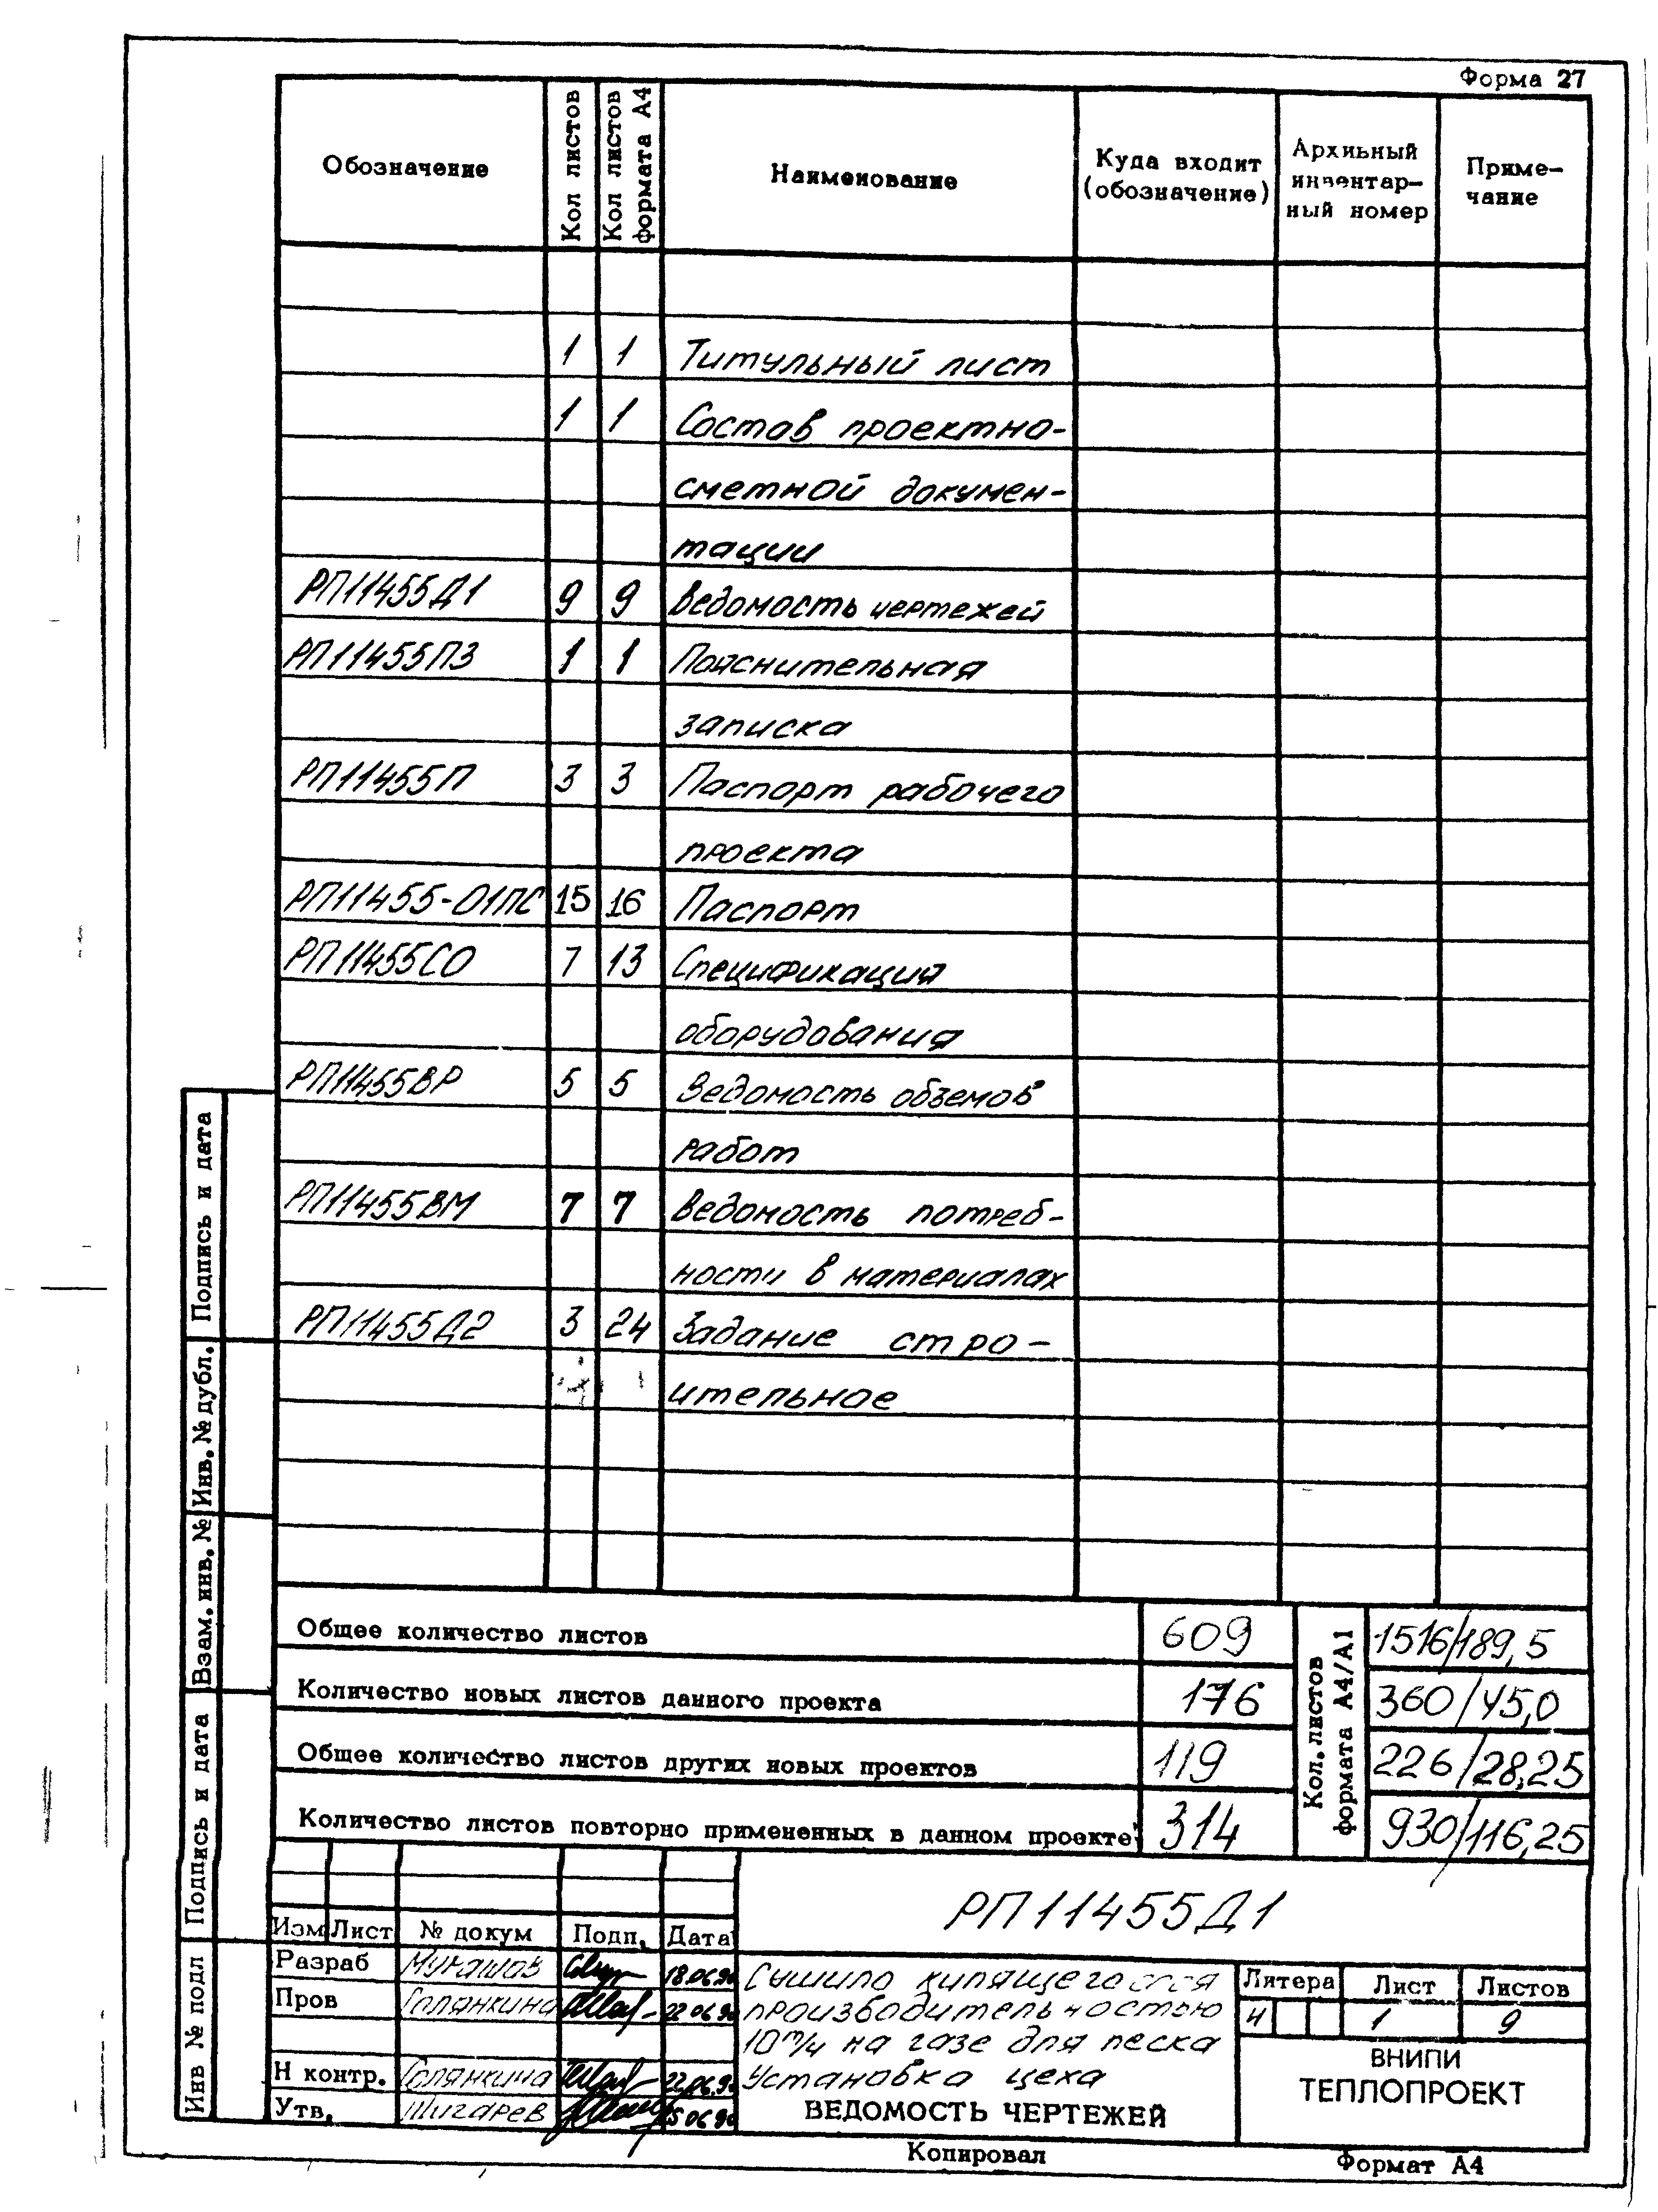 Форма 27
Обозначение
Кол листов
Кол листов формата А4
Наименование
Куда входит (обозначение)
Архивный инвентар- ный номер
Приме- чание
1 1 Титульный лист
1 1 Состав проектно-
сметной докумен-
тации
РП11455Д1 9 9 Ведомость чертежей
РП11455ПЗ 1 1 Пояснительная
записка
РП11455П 3 3 Паспорт рабочего
проекта
РП11455-01ПС 15 16 Паспорт
РП11455СО 7 13 Спецификация
оборудования
РП11455ВР 5 5 Ведомость объемов
работ
РП11455ВМ 7 7 Ведомость потреб-
ности в материалах
РП11455Д2 3 24 Задание стро-
ительное
Общее количество листов 609 1516/189,5
Количество новых листов данного проекта 176 360/45,0
Общее количество листов других новых проектов 119 226/28,25
Количество листов повторно примененных в данном проекте 314 930/116,25
Кол. листов формата А4/А1
РП11455Д1
Изм Лист № докум Подп. Дата
Разраб 18.06.90
Пров Голянкина 22.06.90
Н контр. Голянкина 22.06.90
Утв. Шигарев
Сушило кипящего слоя
производительностью
10 т/ч на газе для песка
Установка цеха
ВЕДОМОСТЬ ЧЕРТЕЖЕЙ
Литера Лист Листов
Ч 1 9
ВНИПИ
ТЕПЛОПРОЕКТ
Копировал
Формат А4
Подпись и дата
Инв. № дубл.
Взам. инв. №
Подпись и дата
Инв № подл